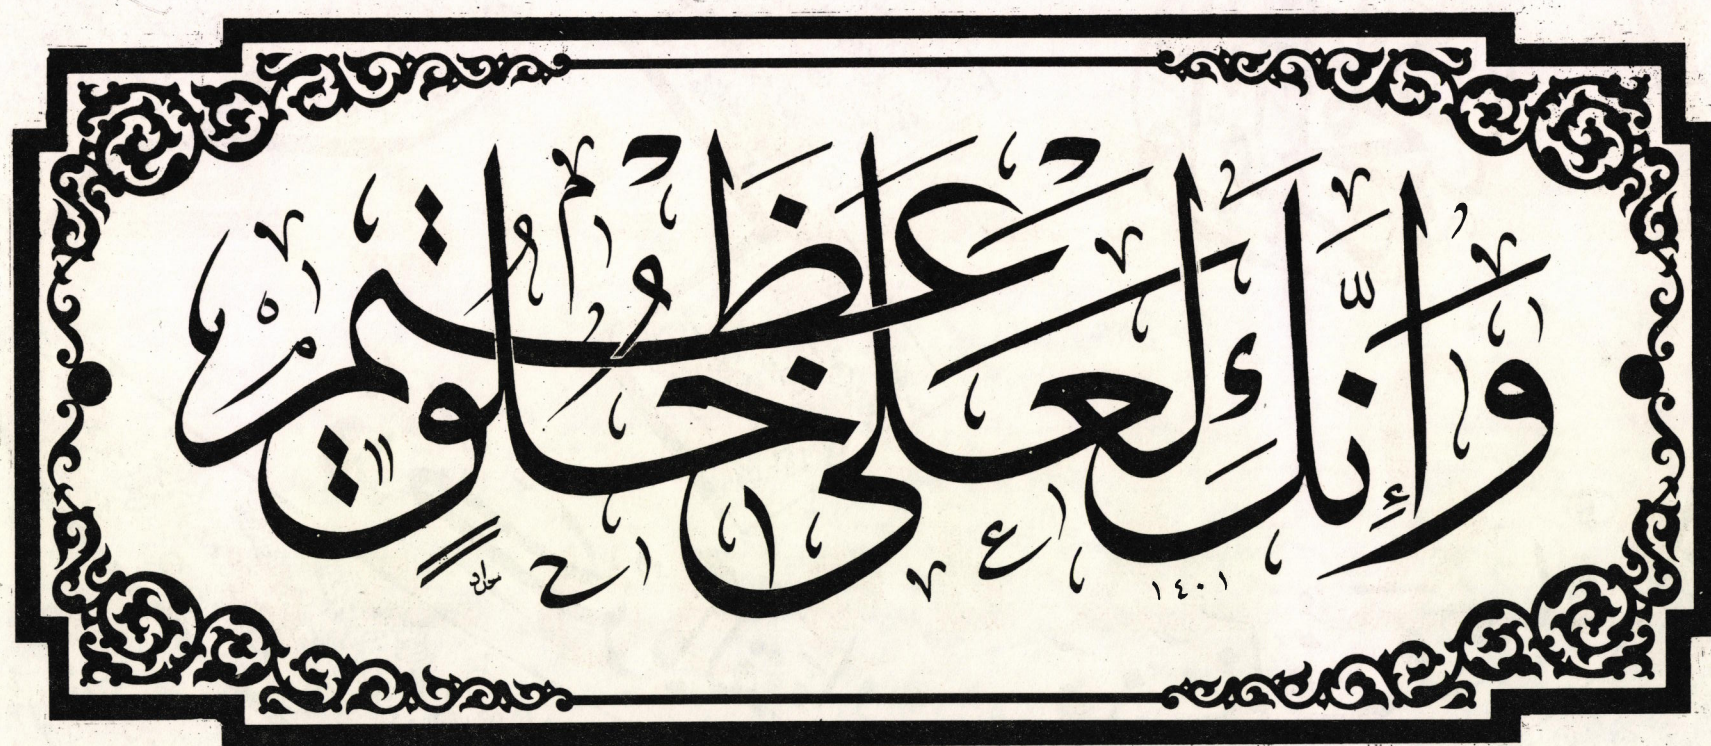 وَإِنَّكَ لَعَلَىٰ خُلُقٍ عَظِيمٍ
١٤٠١